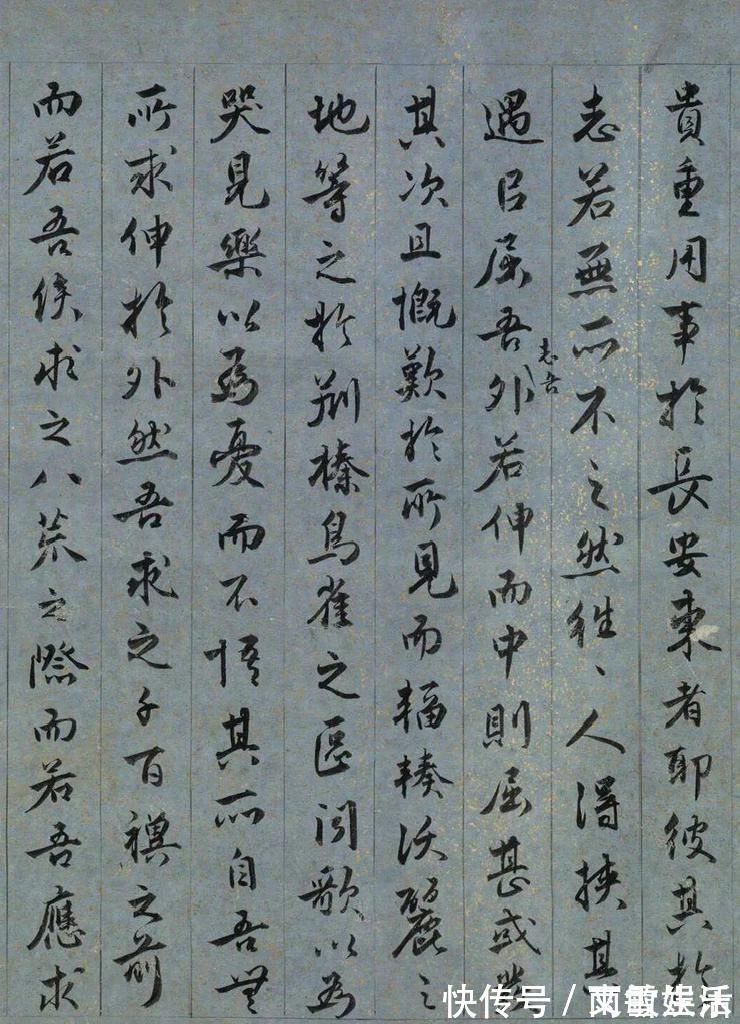 貴重用事於長安東者耶彼其於
志若無所不之然往〻人得挾其
遇㠯屈吾志吾外若伸而中則屈甚或
其次且慨歎於所見而輻輳沃麗之
地等之於荊榛鳥雀之區聞歌以為
哭見樂以為憂而不悟其所自吾無
所求伸於外然吾求之千百禩之前
而若吾俟求之八荒之際而若吾應求
快传号／